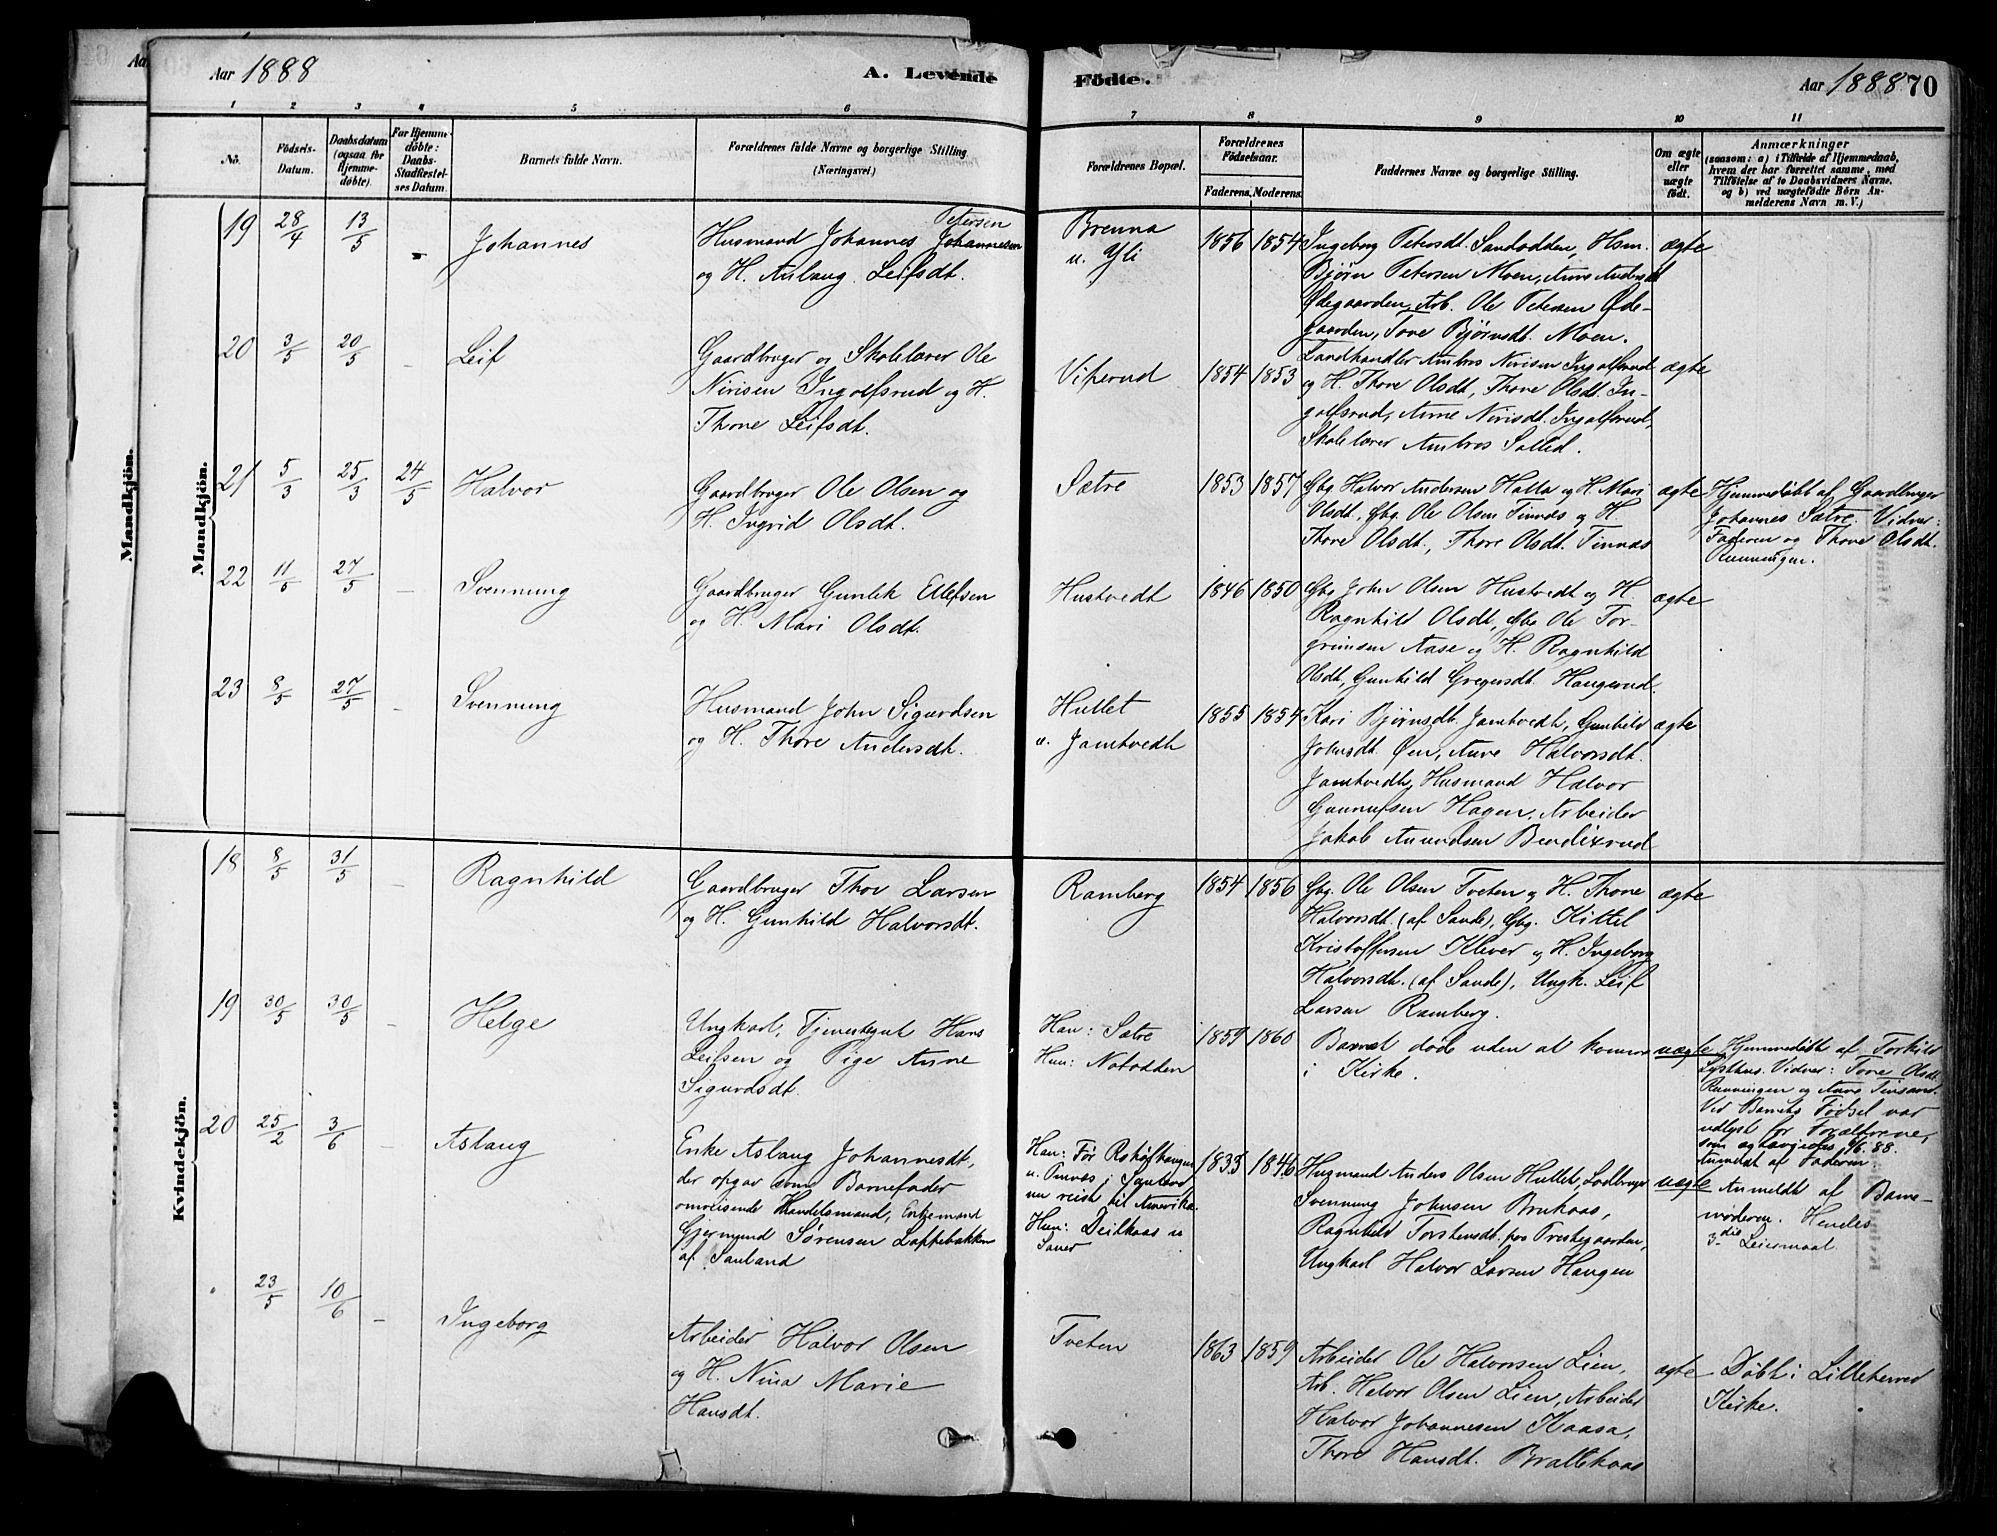 Aar 1888
A. Levende
Fødte.
Aar 1888
70
1 2 3 4 5 6 7 8 9 10 11
No.
Födsels-
Datum.
Daabsdatum
(ogsaa for
Hjemme-
døbte).
For Hjemme-
døbte:
Daabs-
Stadfæstel-
ses Datum.
Barnets fulde Navn.
Forældrenes fulde Navne og borgerlige Stilling.
(Næringsvei.)
Forældrenes Bopæl.
Forældrenes
Fødselsaar.
Faderens. Moderens.
Faddernes Navne og borgerlige Stilling.
Om ægte
eller
uægte
født.
Anmærkninger
(saasom: a) i Tilfælde af Hjemmedaab,
hvem der har forrettet samme, med
Tilføielse af to Daabsvidners Navne,
og b) ved uægtefødte Børn An-
melderens Navn m. V.)
Mandkjön.
Mandkjön.
19 28/4 13/5 -
Johannes
Petersen
Husmand Johannes Johannesen
og H. Aslaug Leifsdt.
Brenna
u. Yli
1856 1854
Ingeborg Petersdt. Sandodden, Hsm.
Bjørn Petersen Moen, Anne Andersdt
Ødegaarden, Arb. Ole Petersen Øde-
gaarden, Tone Bjørnsdt. Moen.
ægte
20 3/5 20/5 -
Leif
Gaardbruger og Skolelærer Ole
Nirisen Ingolfsrud og H.
Thone Leifsdt.
Viperud
1854 1853
Landhandler Ambros Nirisen Ingolfsrud
og H. Thone Olsdt., Thone Olsdt. In-
golfsrud, Anne Nirisdt. Ingolfsrud,
Skolelærer Ambros Sollid.
ægte
21 5/3 25/3 24/5
Halvor
Gaardbruger Ole Olsen og
H. Ingrid Olsdt.
Sætre
1853 1857
Gbg. Halvor Andersen Hatta og H. Mari
Olsdt., Gbg. Ole Olsen Tinnæs og H.
Thone Olsdt., Thore Olsdt. Tinnæs
ægte
Hjemmedøbt af Gaardbruger
Johannes Sætre. Vidner:
Faderen og Thone Olsdt.
Runningen.
22 11/5 27/5 -
Svennung
Gaardbruger Gunlek Ellefsen
og H. Mari Olsdt.
Hustvedt
1846 1850
Gbg. John Olsen Hustvedt og H.
Ragnhild Olsdt., Gbg. Ole Tor-
grimsen Aase og H. Ragnhild
Olsdt., Gunhild Gregersdt. Haugerud.
ægte
23 8/5 27/5 -
Svennung
Husmand John Sigurdsen
og H. Thore Andersdt.
Hullet
u. Jamtvedt
1855 1854
Kari Bjørnsdt. Jamtvedt, Gunhild
Johnsdt. Øen, Anne Halvorsdt.
Jamtvedt, Husmand Halvor
Gunnufsen Hagen, Arbeider
Jakob Amundsen Bendixrud
ægte
Kvindekjön.
18 8/5 31/5 -
Ragnhild
Gaardbruger Thov Larsen
og H. Gunhild Halvorsdt.
Ramberg
1854 1856
Gbg. Ole Olsen Tveten og H. Thone
Halvorsdt. (af Sande), Gbg. Kittel
Kristoffersen Klever og H. Ingeborg
Halvorsdt. (af Sande), Ungk. Leif
Larsen Ramberg.
ægte
19 30/5 30/5 -
Helge
Ungkarl, Tjenestegut Hans
Leifsen og Pige Anne
Sigurdsdt.
Han: Sætre
Hun: Notodden
1859 1860
Barnet døde uden at komme
i Kirke.
uægte
Hjemmedøbt af Torkild
Lysthus. Vidner: Tone Olsdt.
Runningen og Anne Tinsand.
Ved Barnets Fødsel var
udlyst for Forældrene,
som egteviedes 9/6.88.
Anmeldt af Faderen
20 25/2 3/6 -
Aslaug
Enke Aslaug Johannesdt.,
der opgav som Barnefader
omreisende Handelsmand, Enkemand
Gjermund Sørensen Loppebakken
af Sauland
Han: Før
u. Omnæs i Sauland
nu reist til Amerika.
Hun: Deilkaas u
Sauer
1833 1846
Husmand Anders Olsen Hullet, Lodbruger
Svennung Johnsen Brukaas,
Ragnhild Torstensdt. paa Prestegaarden,
Ungkarl Halvor Larsen Haugen
uægte
Anmeldt af Barne-
moderen. Hendes
3die Leiermaal
23/5 10/6 -
Ingeborg
Arbeider Halvor Olsen
og H. Nina Marie
Hansdt.
Tveten
1863 1859
Arbeider Ole Halvorsen Lien,
Arb. Halvor Olsen Lien, Arbeider
Halvor Johannesen Kaasa,
Thore Hansdt. Brattekaas
ægte
Døbt i Lilleherred
Kirke.